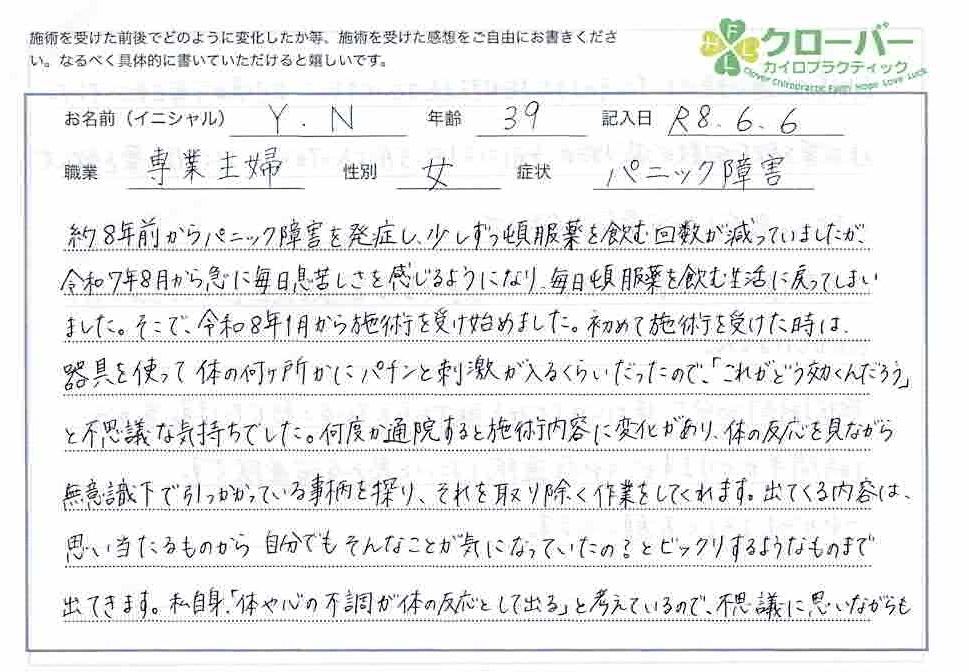 施術を受けた前後でどのように変化したか等、施術を受けた感想をご自由にお書きくださ
い。なるべく具体的に書いていただけると嬉しいです。
FLHL
クローバー
カイロプラクティック
Clover chiropractic Faith Hope Love Luck
お名前（イニシャル） Y.N 年齢 39 記入日 R8.6.6
職業 専業主婦 性別 女 症状 パニック障害
約8年前からパニック障害を発症し、少しずつ頓服薬を飲む回数が減っていましたが、
令和7年8月から急に毎日息苦しさを感じるようになり、毎日頓服薬を飲む生活に戻ってしまい
ました。そこで、令和8年1月から施術を受け始めました。初めて施術を受けた時は、
器具を使って体の何ヶ所かにパチンと刺激が入るくらいだったので、「これがどう効くんだろう」
と不思議な気持ちでした。何度か通院すると施術内容に変化があり、体の反応を見ながら
無意識下で引っかかっている事柄を探り、それを取り除く作業をしてくれます。出てくる内容は、
思い当たるものから自分でもそんなことが気になっていたの？とビックリするようなものまで
出てきます。私自身、「体や心の不調が体の反応として出る」と考えているので、不思議に思いながらも